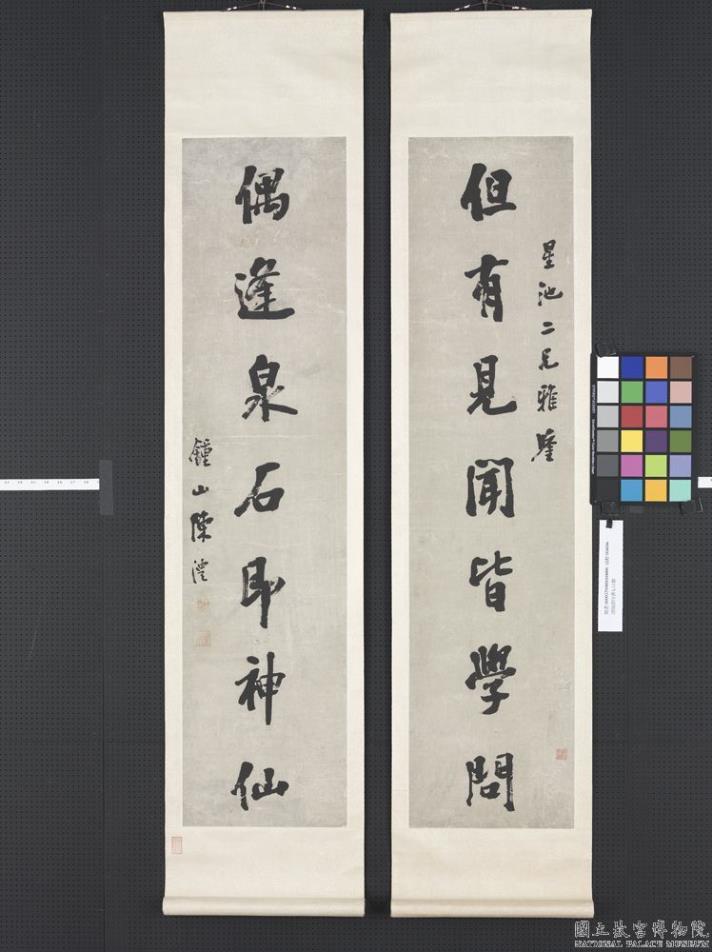 星池二兄雅鑒
但有見聞皆學問
偶逢泉石即神仙
鍾山陳澧
國立故宮博物院
NATIONAL PALACE MUSEUM